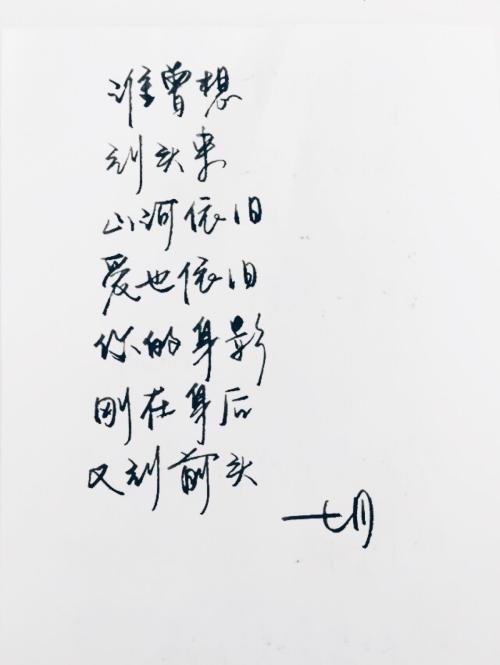 谁曾想
到头来
山河依旧
爱也依旧
你的身影
刚在身后
又到前头
七月